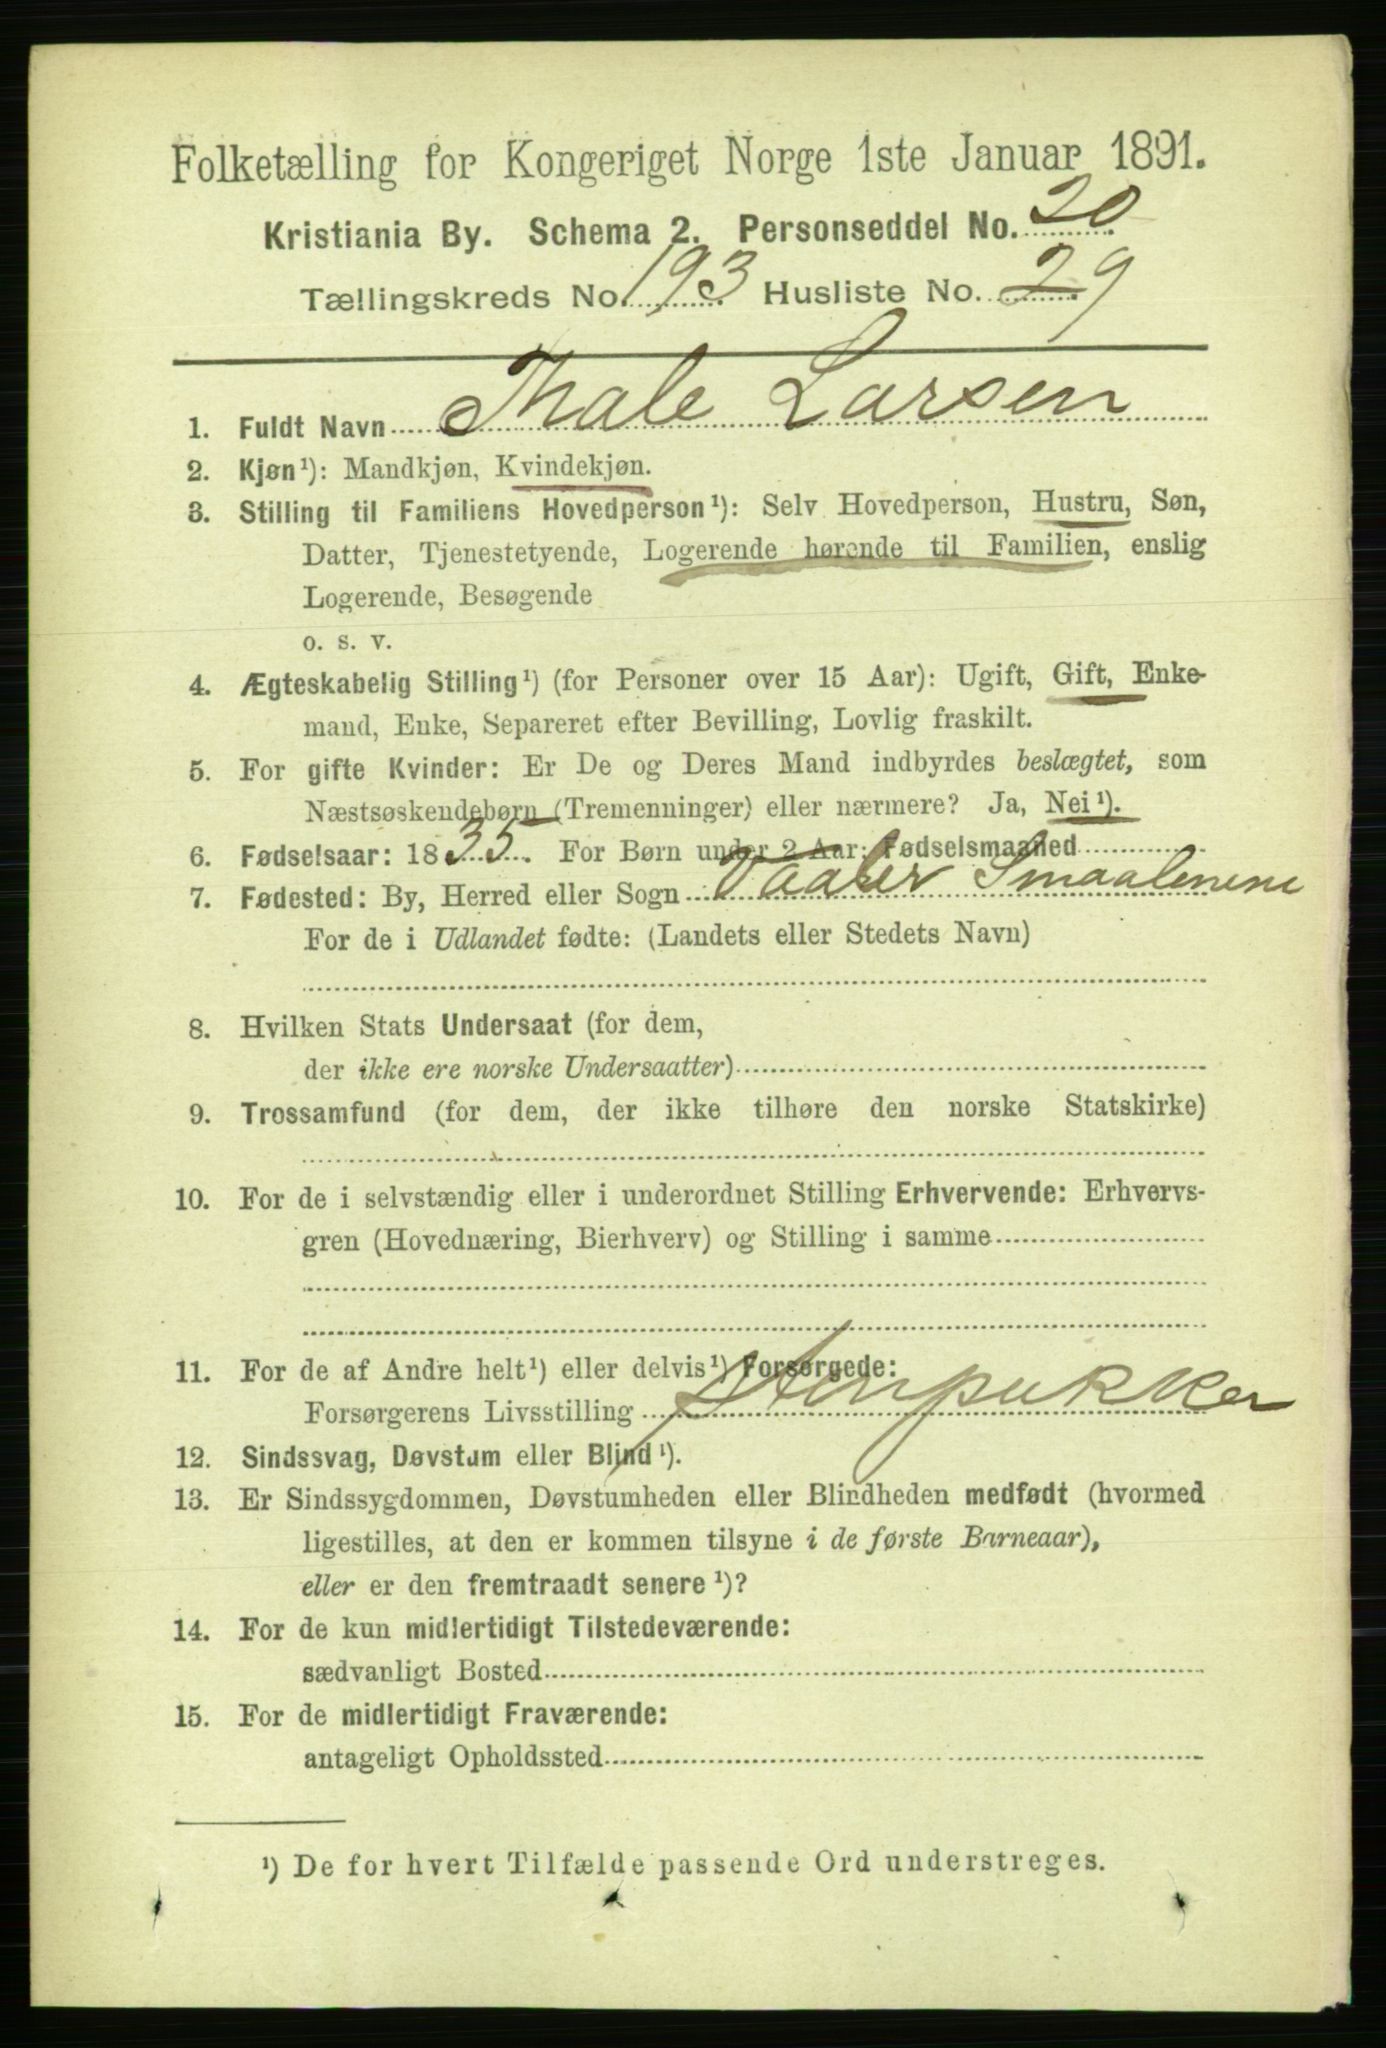 Folketælling for Kongeriget Norge 1ste Januar 1891.
Kristiania By. Schema 2. Personseddel No. 20
Tællingskreds No. 193 Husliste No. 29
1. Fuldt Navn Thale Larsen
2. Kjøn¹): Mandkjøn, Kvindekjøn.
3. Stilling til Familiens Hovedperson¹): Selv Hovedperson, Hustru, Søn,
Datter, Tjenestetyende, Logerende hørende til Familien, enslig
Logerende, Besøgende
o. s. v.
4. Ægteskabelig Stilling¹) (for Personer over 15 Aar): Ugift, Gift, Enke-
mand, Enke, Separeret efter Bevilling, Lovlig fraskilt.
5. For gifte Kvinder: Er De og Deres Mand indbyrdes beslægtet, som
Næstsøskendebørn (Tremenninger) eller nærmere? Ja, Nei¹).
6. Fødselsaar: 1835. For Børn under 2 Aar: Fødselsmaaned
7. Fødested: By, Herred eller Sogn Vaaler Smaalenene
For de i Udlandet fødte: (Landets eller Stedets Navn)
8. Hvilken Stats Undersaat (for dem,
der ikke ere norske Undersaatter)
9. Trossamfund (for dem, der ikke tilhøre den norske Statskirke)
10. For de i selvstændig eller i underordnet Stilling Erhvervende: Erhvervs-
gren (Hovednæring, Bierhverv) og Stilling i samme
11. For de af Andre helt¹) eller delvis¹) Forsørgede:
Forsørgerens Livsstilling Stenpukker
12. Sindssvag, Døvstum eller Blind¹).
13. Er Sindssygdommen, Døvstumheden eller Blindheden medfødt (hvormed
ligestilles, at den er kommen tilsyne i de første Barneaar),
eller er den fremtraadt senere¹)?
14. For de kun midlertidigt Tilstedeværende:
sædvanligt Bosted
15. For de midlertidigt Fraværende:
antageligt Opholdssted
¹) De for hvert Tilfælde passende Ord understreges.